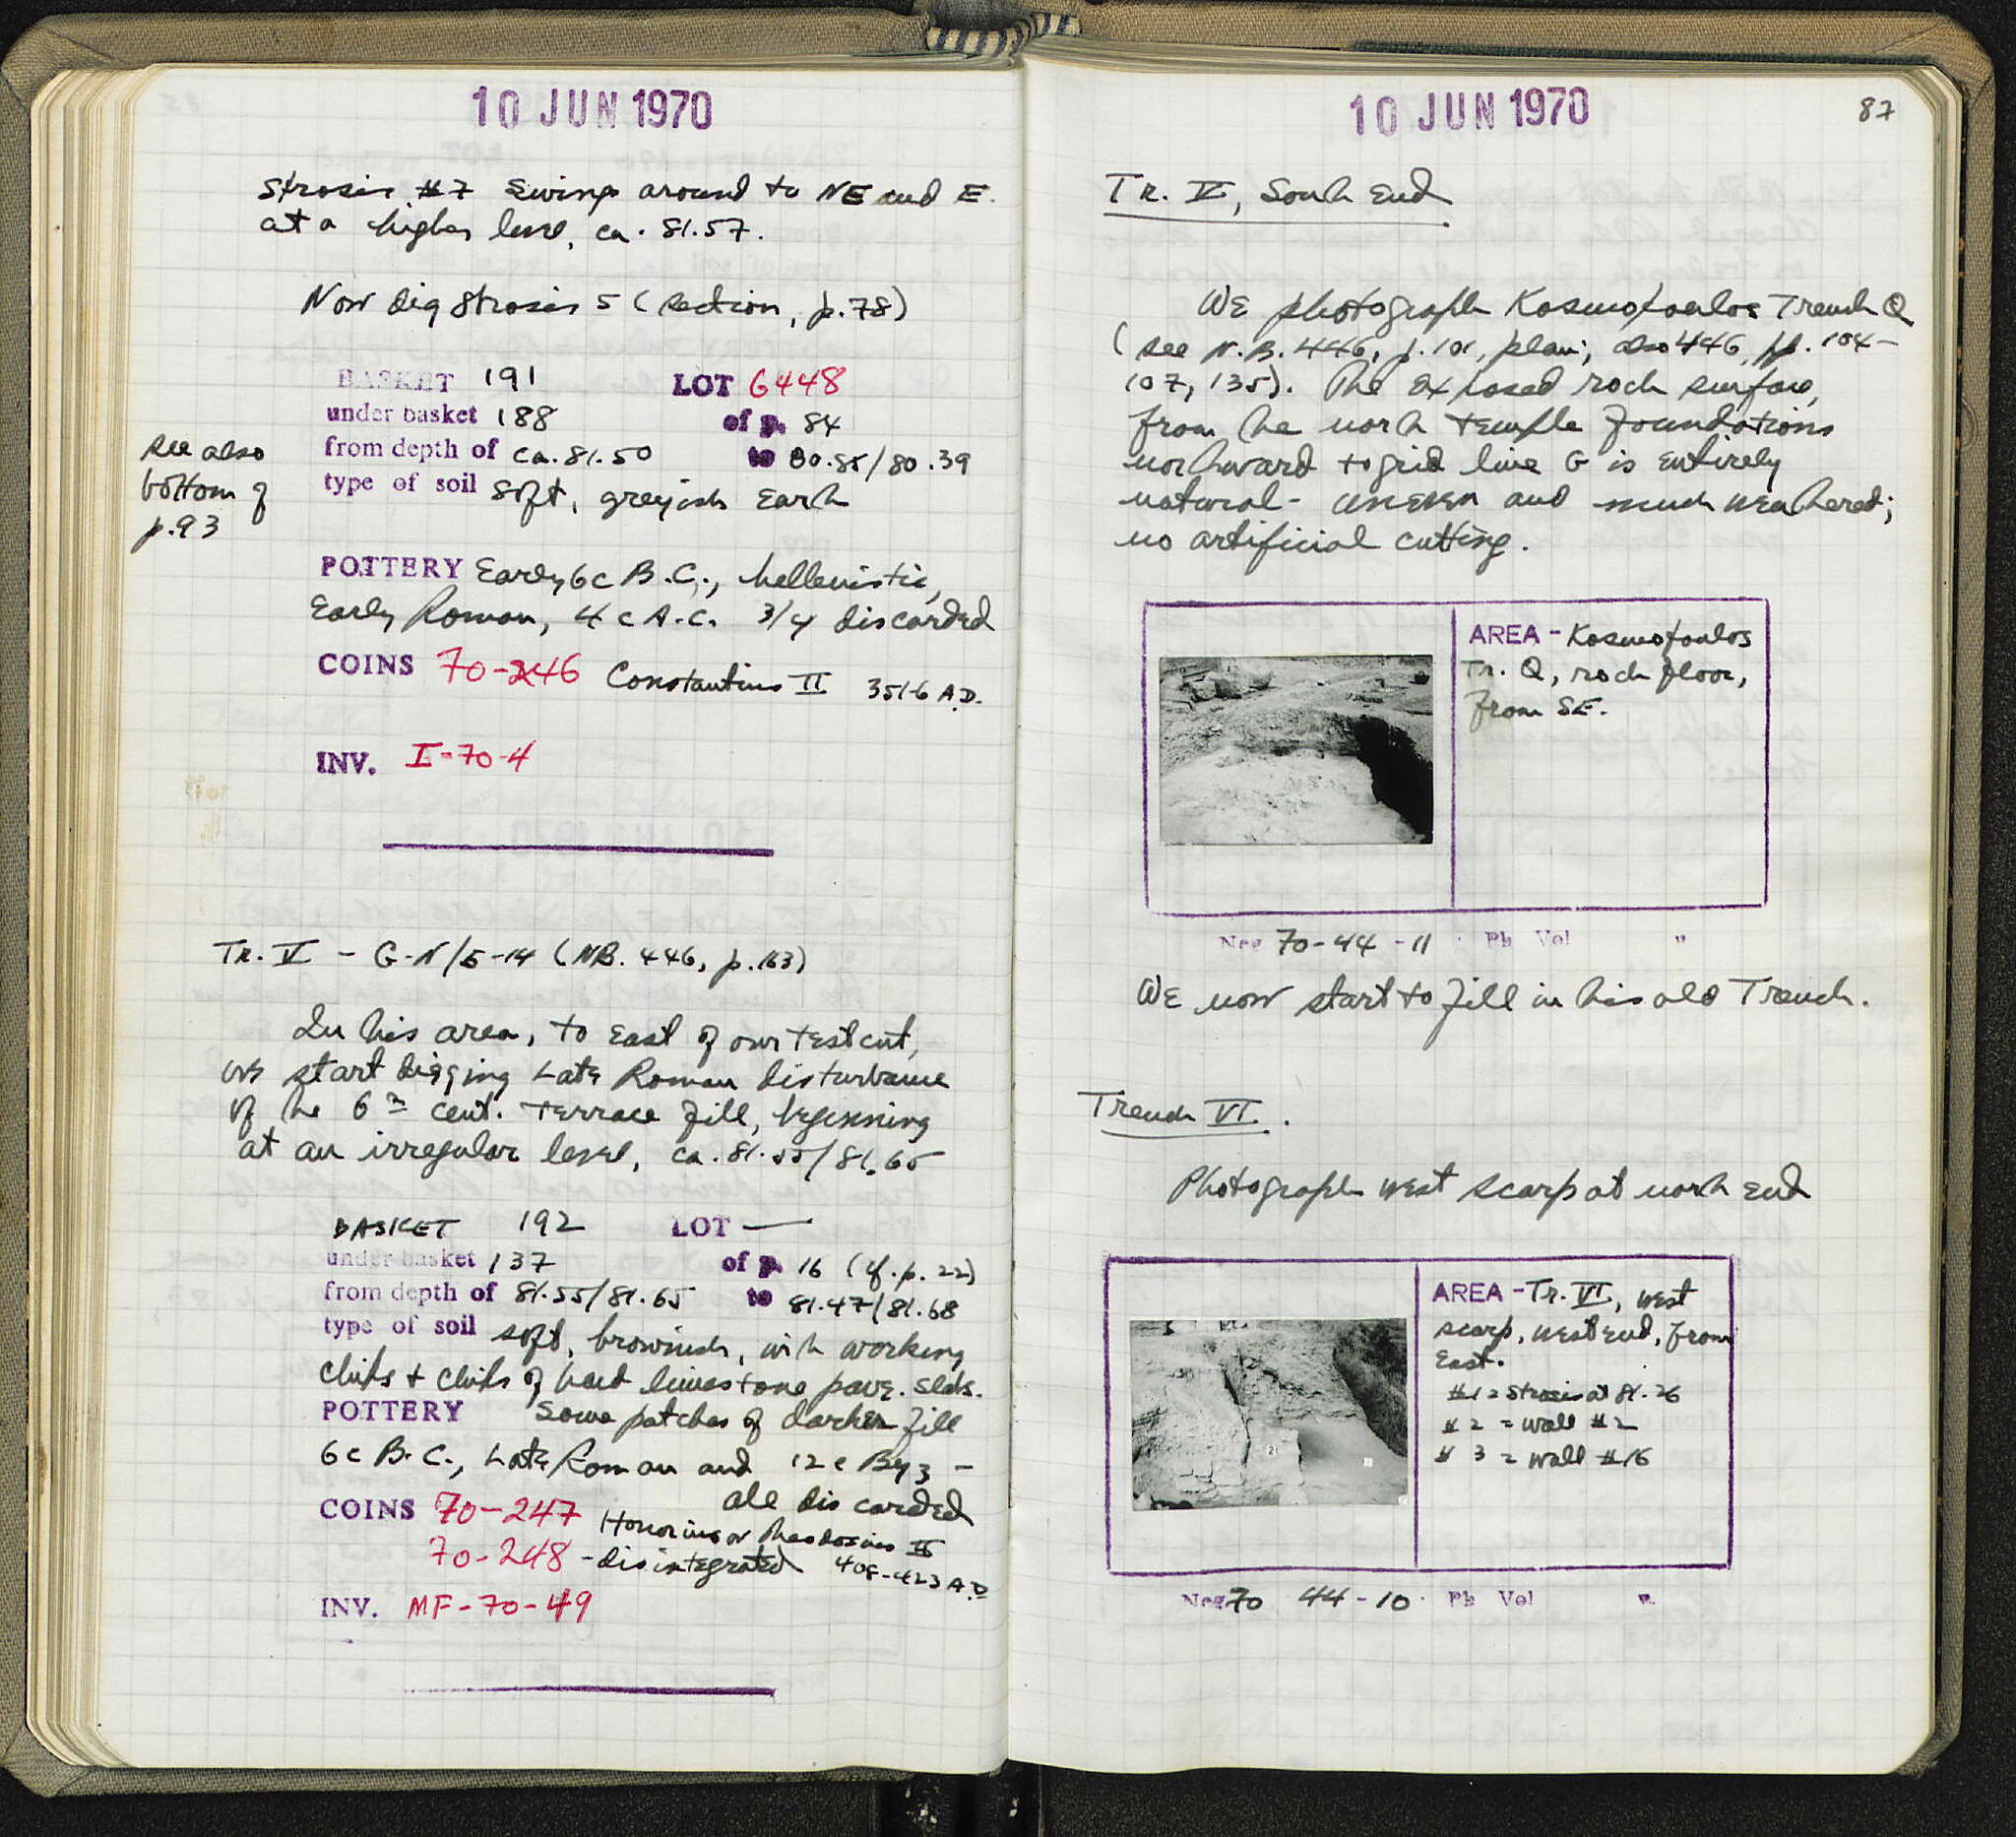 10 JUN 1970
Strosis #7 swings around to NE and E.
at a higher level, ca. 81.57.
Now dig strosis 5 (section, p.78)
BASKET 191 LOT 6448
under basket 188 of p. 84
from depth of ca. 81.50 to 80.85/80.39
type of soil soft, greyish earth
see also
bottom of
p.93
POTTERY Early 6c B.C., hellenistic,
Early Roman, 4c A.C. 3/4 discarded
COINS 70-246 Constantius II 351-6 A.D.
INV. I-70-4
Tr. V - G-N/5-14 (NB. 446, p.163)
In this area, to East of our test cut,
we start digging Late Roman disturbance
of the 6th cent. terrace fill, beginning
at an irregular level, ca. 81.55/81.65
BASKET 192 LOT —
under basket 137 of p. 16 (cf. p. 22)
from depth of 81.55/81.65 to 81.47/81.68
type of soil soft, brownish, with working
chips + chips of hard limestone pave. slabs.
POTTERY Some patches of darker fill
6c B.C., Late Roman and 12c Byz -
all discarded
COINS 70-247 Honorius or Theodosius II
70-248 - disintegrated 408-423 A.D
INV. MF-70-49
10 JUN 1970
87
Tr. V, South End
We photograph Kosmopoulos Trench Q
(see N.B. 446, p.101, plan; also 446, pp. 104-
107, 135). The exposed rock surface,
from the north temple foundations
northward to grid line G is entirely
natural - uneven and much weathered;
no artificial cutting.
AREA - Kosmopoulos
Tr. Q, rock floor,
from SE.
Neg 70-44-11 Ph Vol
We now start to fill in this old Trench.
Trench VI.
Photograph west scarp at north end
AREA - Tr. VI, west
scarp, west end, from
East.
#1 = strosis at 81.26
#2 = wall #2
#3 = wall #16
2
Neg 70 44-10 Ph Vol